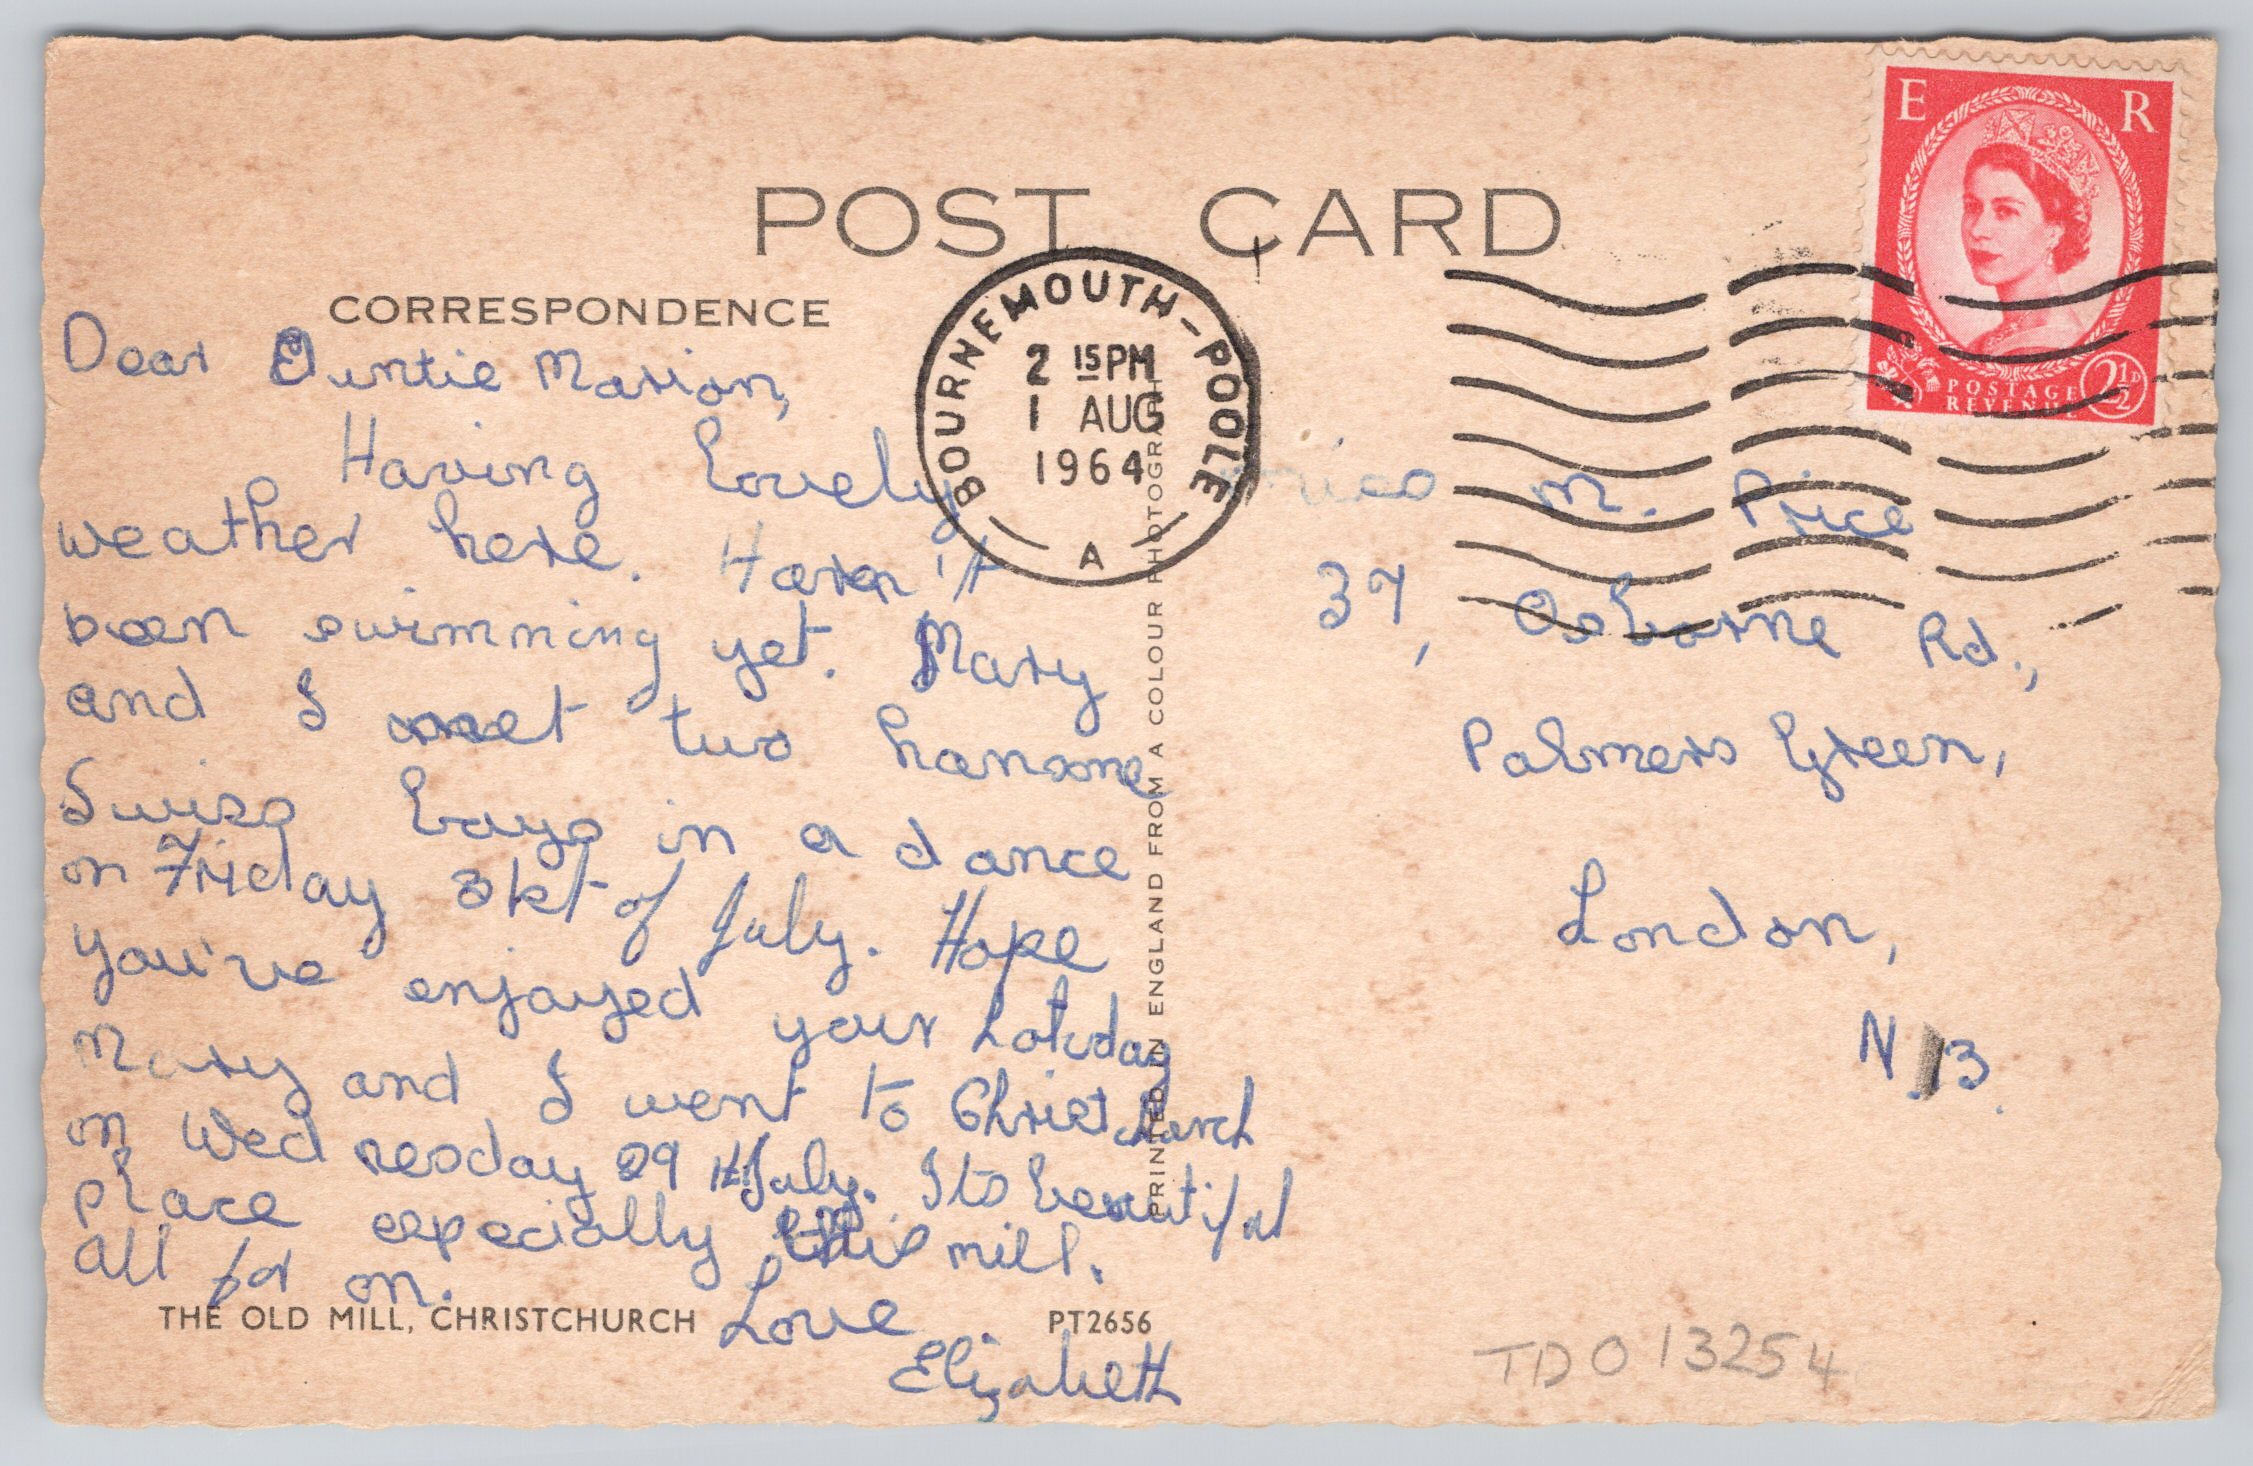 POST CARD
CORRESPONDENCE
E R
POSTAGE
REVENUE
2½D
BOURNEMOUTH-POOLE
2 15PM
1 AUG
1964
A
Dear Auntie Marion,
Having lovely
weather here. Haven't
been swimming yet. Mary
and I met two hansome
Swiss boys in a dance
on Friday 31st of July. Hope
you've enjoyed your holiday
Mary and I went to Christchurch
on Wednesday 29th July. Its beautiful
place especially this mill.
All for on.
Love
Elizabeth
THE OLD MILL, CHRISTCHURCH
PT2656
PRINTED IN ENGLAND FROM A COLOUR PHOTOGRAPH
Miss M. Price
37, Osborne Rd.,
Palmers Green,
London,
N 13.
TDO 13254